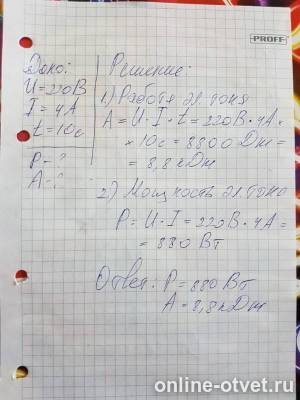 PROFF
Дано:
U=220В
I=4А
t=10с
P-?
A-?
Решение:
1) Работа эл. тока
A=U·I·t=220В·4А×
×10с=8800Дж=
=8,8кДж
2) Мощность эл. тока
P=U·I=220В·4А=
=880Вт
Ответ: P=880Вт
A=8,8кДж
online-otvet.ru